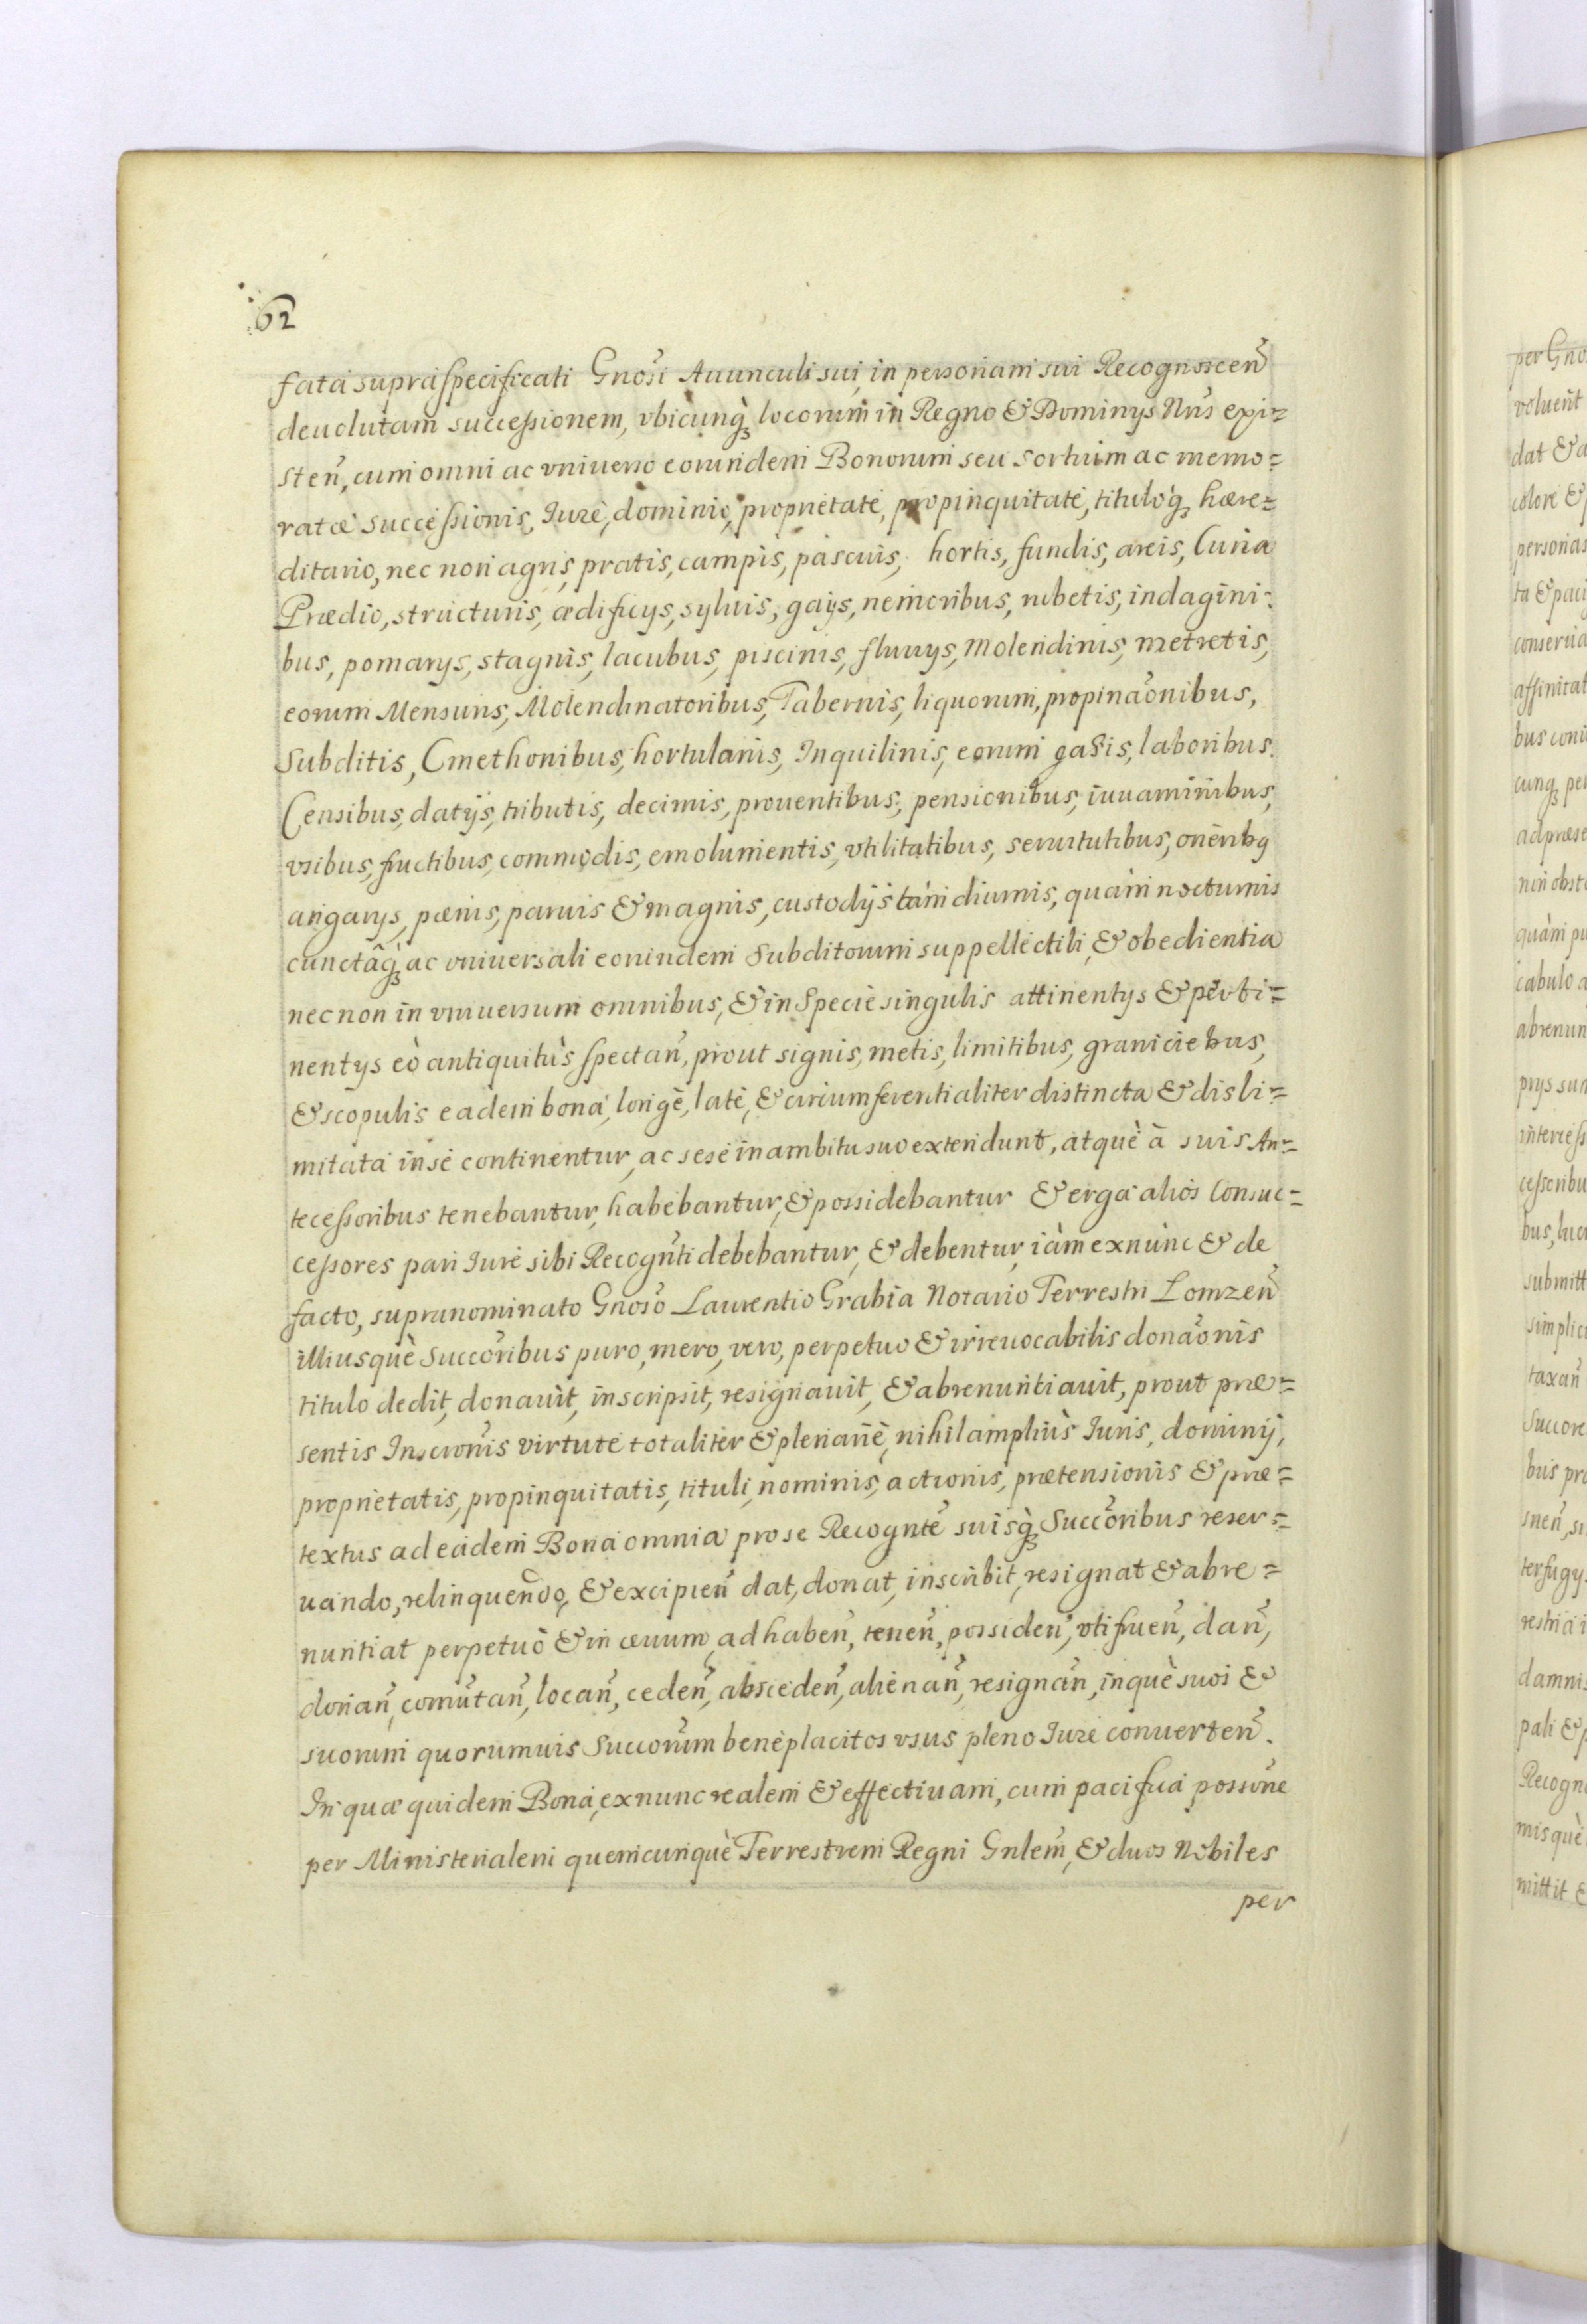 62
fata supraspecificati Gnosi Auunculi sui, in personam sui Recognoscen̄
deuolutam successionem, vbicunq₃ locorum in Regno & Dominys Nris exi=
sten̄, cum omni ac vniuerso eorundem Bonorum seu sortium ac memo=
ratæ successionis, Jurè, dominio, proprietate, propinquitate, tituloq₃ hære=
ditario, nec non agris, pratis, campis, pascuis, hortis, fundis, areis, Curia
Prædio, structuris, ædificys, syluis, gays, nemoribus, rubetis, indagini=
bus, pomarys, stagnis, lacubus, piscinis, fluuys, Molendinis, metretis,
eorum Mensuris, Molendinatoribus, Tabernis, liquorum, propinaōnibus,
Subditis, Cmethonibus, hortulanis, Inquilinis, eorum gasis, laboribus.
Censibus, datijs, tributis, decimis, prouentibus, pensionibus, iuuaminibus,
vsibus, fructibus, commodis, emolumentis, vtilitatibus, seruitutibus, oneribg
angarys, pænis, paruis & magnis, custodijs tàm diurnis, quàm nocturnis
cunctâq₃ ac vniuersali eorundem Subditorum suppellectili, & obedientia
nec non in vniuersum omnibus, & in Specie singulis attinentys & perti=
nentys eò antiquitùs spectan̄, prout signis, metis, limitibus, graniciebus,
& scopulis eadem bona, longè, latè, & circumferentialiter distincta & disli=
mitata in se continentur, ac sese in ambitu suo extendunt, atquè à suis An=
tecessoribus tenebantur, habebantur, & possidebantur & erga alios Consuc=
cessores pari Jure sibi Recogn̄ti debebantur, & debentur, iàm exnùnc & de
facto, supranominato Gnoso Laurentio Grabia Notario Terrestri Lomzen̄
illiusquè Succoribus puro, mero, vero, perpetuo & irreuocabilis donaōnis
titulo dedit, donauit, inscripsit, resignauit, & abrenuntiauit, prout præ=
sentis Inscronis virtute totaliter & plenariè, nihil ampliùs Juris, dominij,
proprietatis, propinquitatis, tituli, nominis, actionis, prætensionis & præ=
textus ad eadem Bona omnia pro se Recognte suisq₃ Succoribus reser=
uando, relinquendo, & excipien̄ dat, donat, inscribit, resignat & abre=
nuntiat perpetuò & in æuum, ad haben̄, tenen̄, possiden̄, vtifruen̄, dan̄,
donan̄, comutan̄, locan̄, ceden̄, absceden̄, alienan̄, resignan̄, inquè suos &
suorum quorumuis Succorum beneplacitos vsus pleno Jure conuerten̄.
In quæ quidem Bona, exnunc realem & effectiuam, cum pacifica possone
per Ministerialem quemcunquè Terrestrem Regni Gnlem, & duos Nobiles
per
per Gno
voluerit
dat & a
colore &
personas
ta & paci
conserua
affinitat
bus coni
cunq₃ per
ad præse
non obst
quàm pu
cabulo a
abrenun
prys sum
intercess
cessoribu
bus, luc
submitt
simplici
taxan̄
Succore
bus pro
snen̄, su
terfugy
restri a i
damnis
pali & p
Recogn
misquè
mittit &